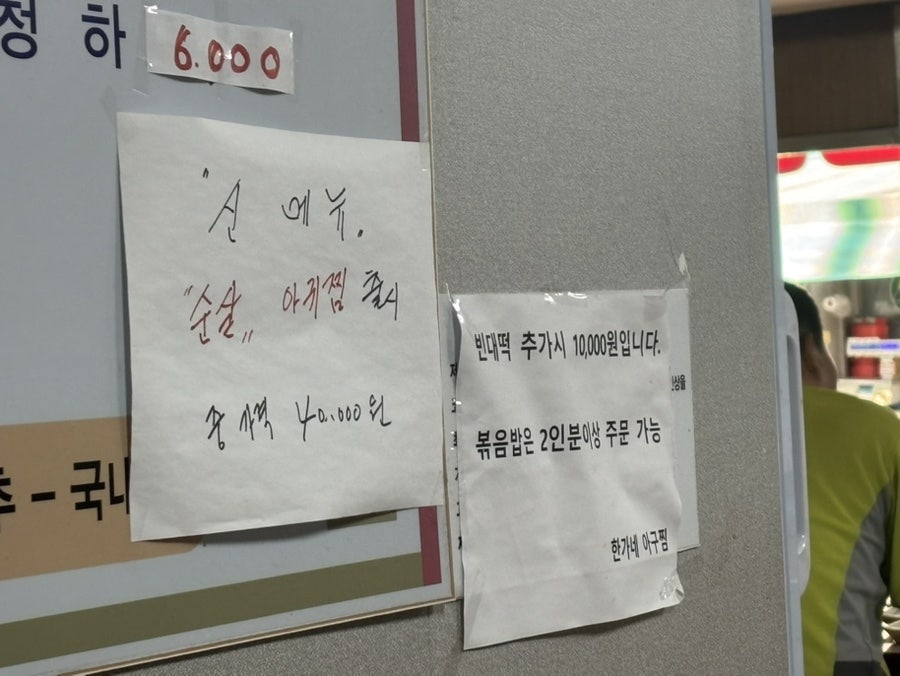 정 하
6.000
"신 메뉴.
"순살" 아귀찜 출시
중 가격 40.000원
추 - 국내
빈대떡 추가시 10,000원입니다.
인상을
볶음밥은 2인분이상 주문 가능
한가네 아구찜